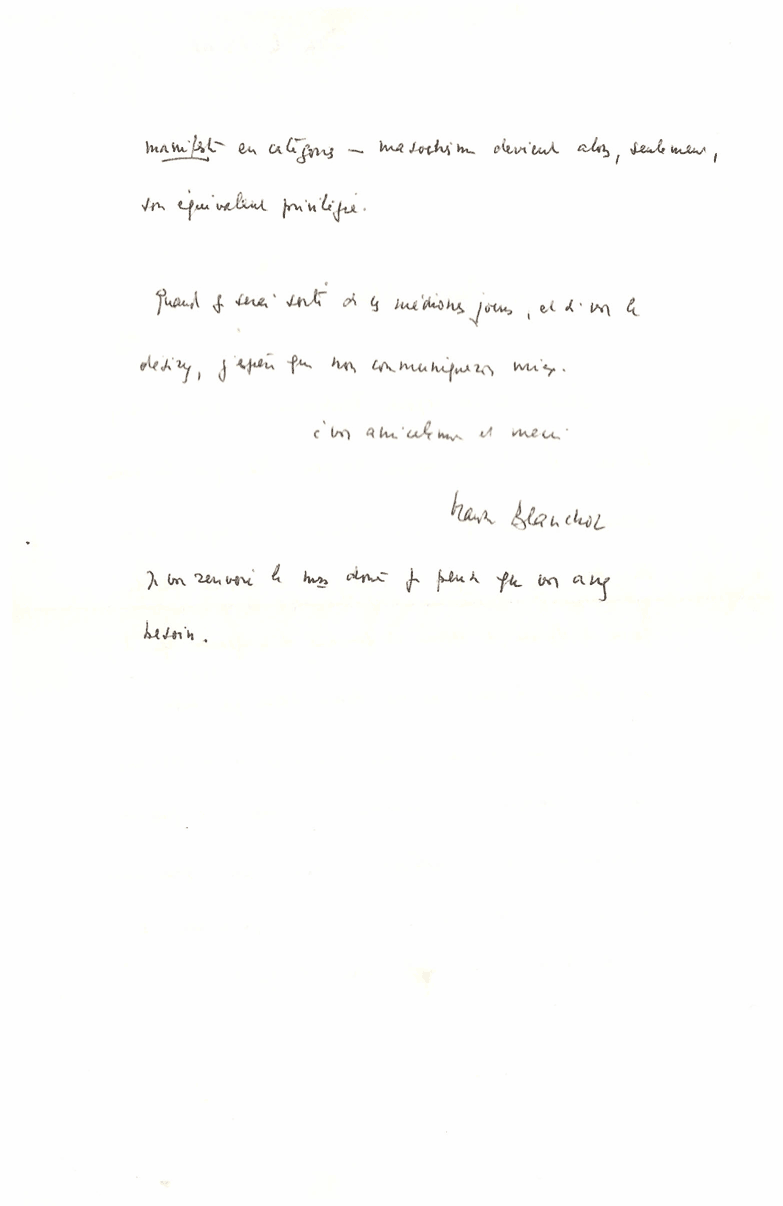 manifeste en catégories — masochisme devient alors, seulement,
son équivalent privilégié.
Quand je serai sorti de ces médiocres jours, et si vous le
désirez, j'espère que nous communiquerons mieux.
à vous amicalement et merci
Maurice Blanchot
Je vous renvoie le mss dont je pense que vous avez
besoin.